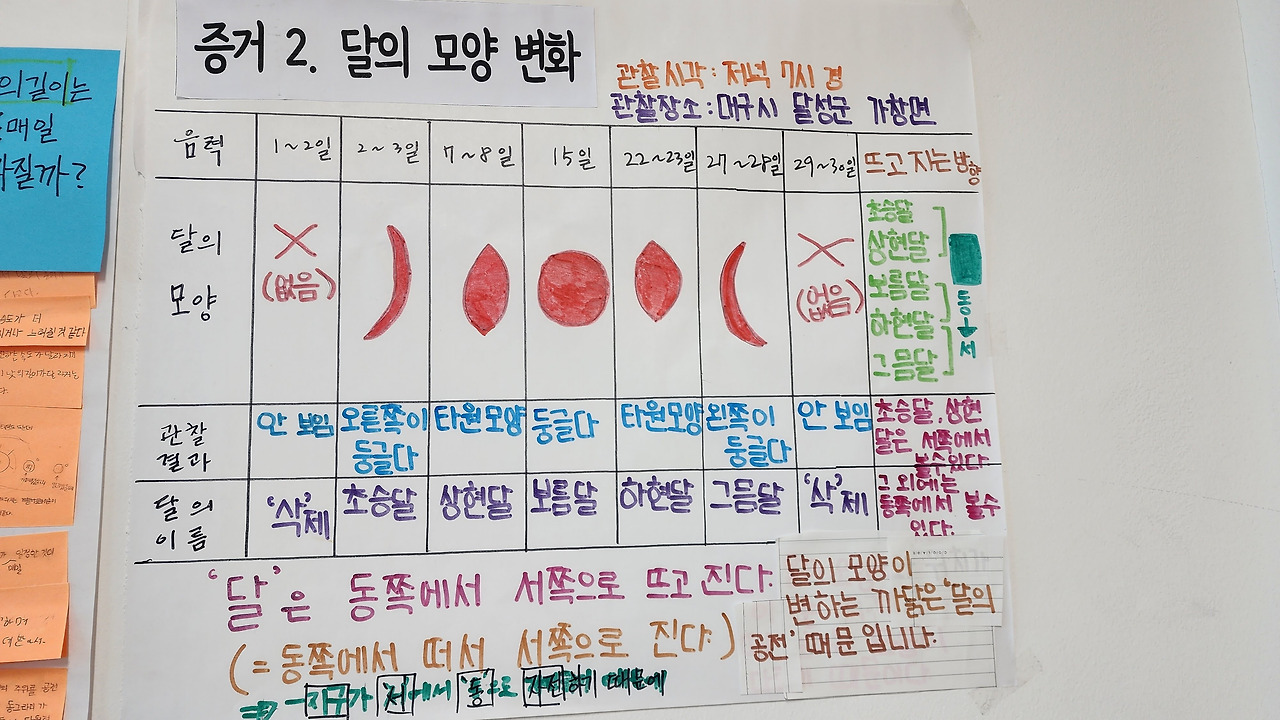 증거 2. 달의 모양 변화
관찰시각 : 저녁 7시 경
관찰장소 : 대구시 달성군 가창면
음력 1~2일 2~3일 7~8일 15일 22~23일 27~28일 29~30일 뜨고 지는 방향
달의
모양
(없음)
(없음)
초승달
상현달
보름달
하현달
그믐달
동
서
관찰
결과
안 보임
오른쪽이
둥글다
타원모양
둥글다
타원모양
왼쪽이
둥글다
안 보임
초승달, 상현
달은 서쪽에서
볼수있다
달의
이름
'삭'제
초승달
상현달
보름달
하현달
그믐달
'삭'제
그 외에는
동쪽에서 볼수
있다.
'달'은 동쪽에서 서쪽으로 뜨고 진다.
(= 동쪽에서 떠서 서쪽으로 진다.)
⇒ 지구가 '서'에서 '동'으로 자전하기 때문에
달의 모양이
변하는 까닭은 '달의
공전' 때문입니다.
의길이는
매일
질까?